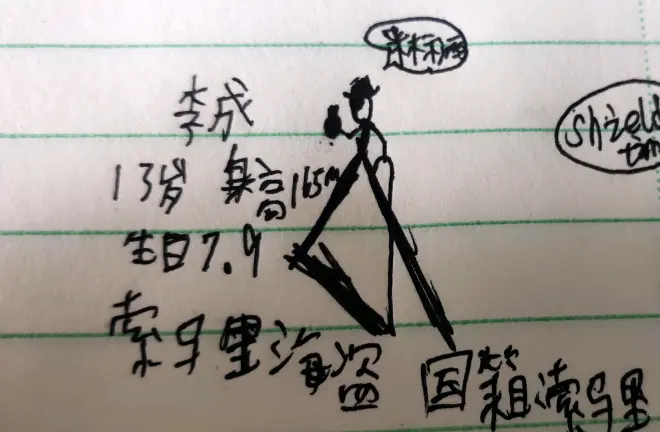 李成
13岁 身高165m
生日7.9
索马里海盗
国籍索马里
shield